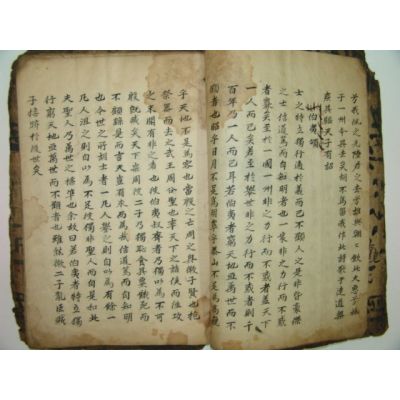 于一州今其去矣胡不為留我作此詩歌于逵道無
疾其驅天子有詔
伯夷頌
士之特立獨行適於義而已不顧人之是非皆豪傑
之士信道篤而自知明者也一家非之力行而不惑
者寡矣至於一國一州非之力行而不惑者蓋天下
一人而已矣至於舉世非之力行而不惑者則千
百年乃一人而已耳若伯夷者窮天地亘萬世而不
顧者也昭乎日月不足為明崒乎泰山不足為高巍
乎天地不足為容也當殷之亡周之興微子賢也抱
祭器而去之武王周公聖也率天下之諸侯而往攻
之未聞有非之者也彼伯夷叔齊者乃獨以為不可
殷既滅矣天下宗周彼二子乃獨恥食其粟餓死而
不顧繇是而言夫豈有求而為哉信道篤而自知明
也今世之所謂士者一凡人譽之則自以為有餘一
凡人沮之則自以為不足彼獨非聖人而自是如此
夫聖人乃萬世之標準也余故曰若伯夷者特立獨
行窮天地亘萬世而不顧者也雖然微二子亂臣賊
子接跡於後世矣